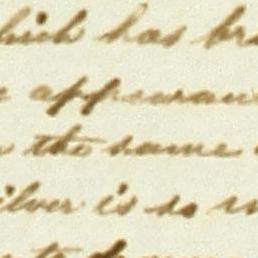 which has
appearan
the same
ilver is so